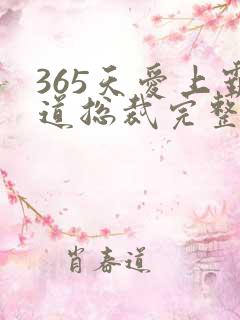 365天爱上霸
道总裁完整
肖春道